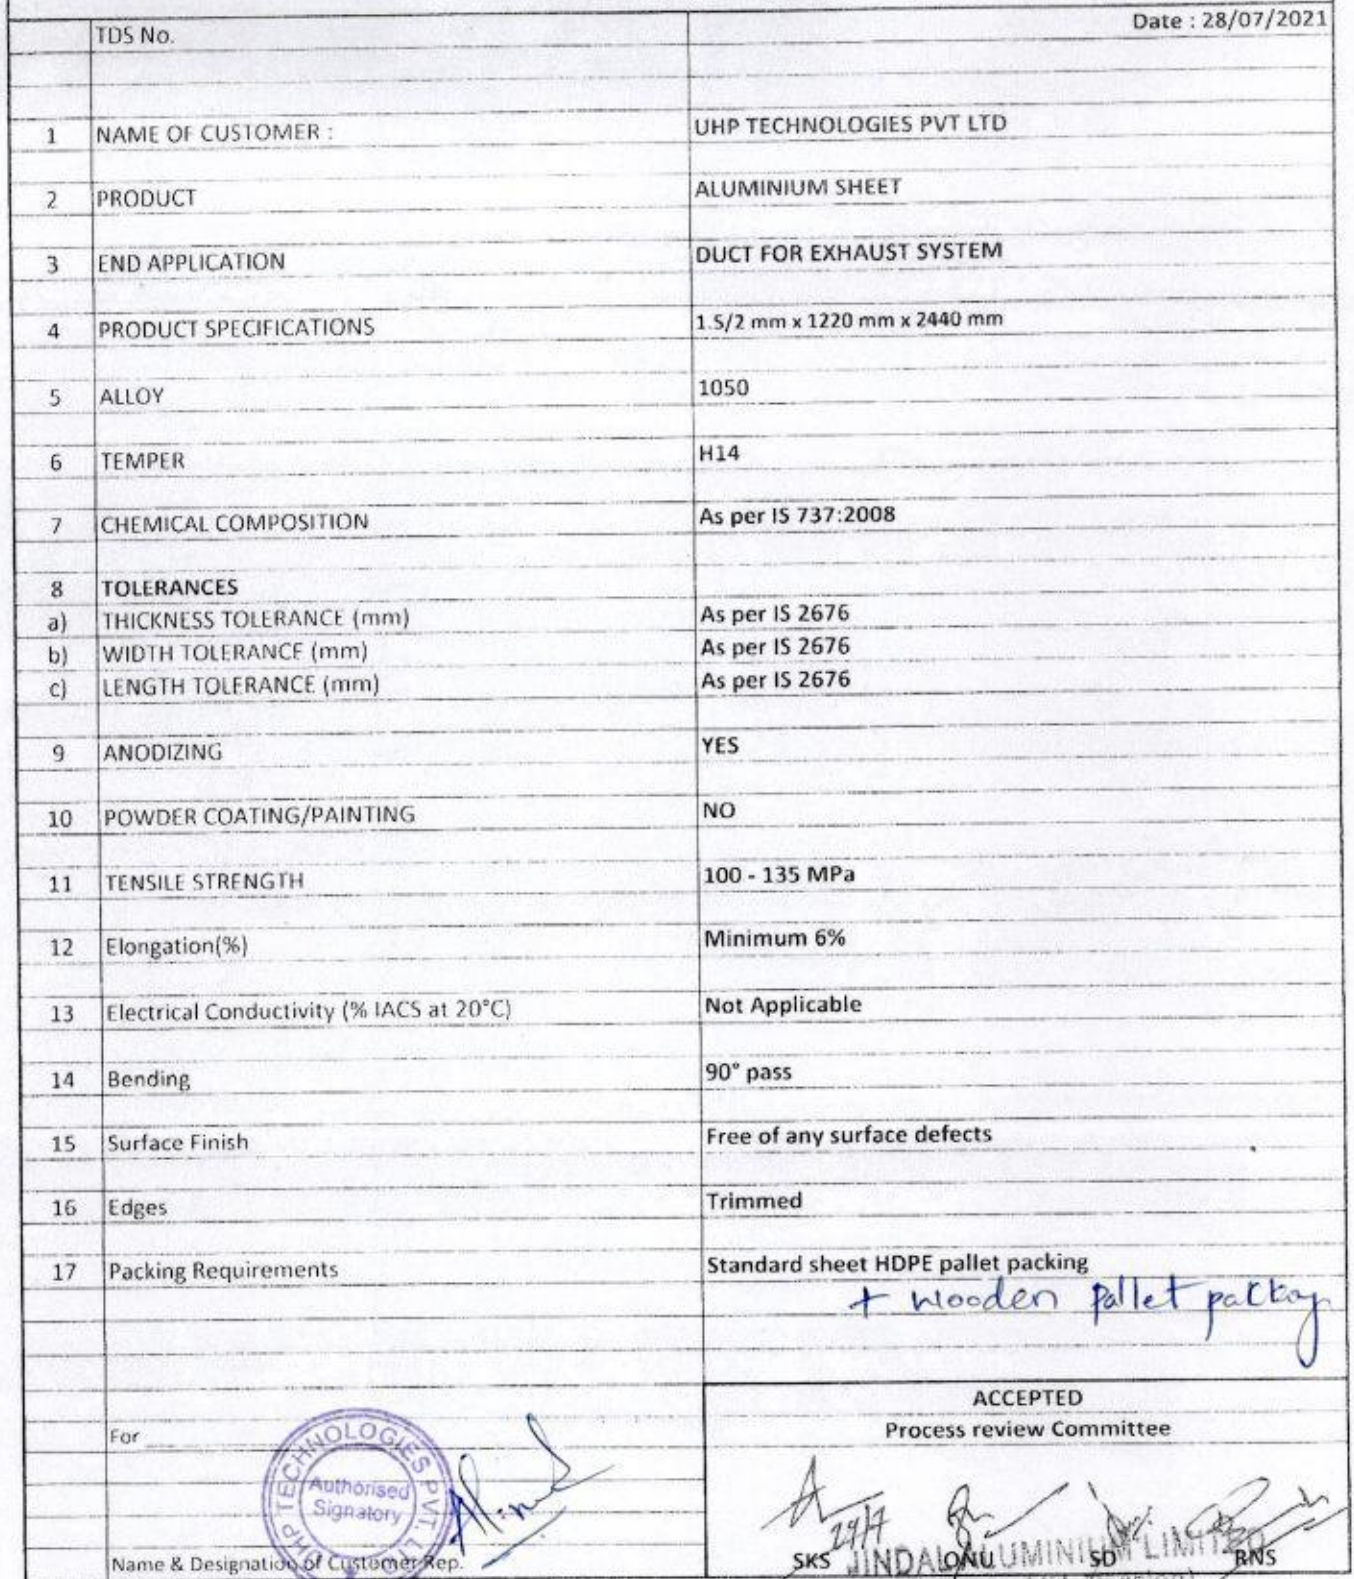 TDS No.
Date : 28/07/2021
1 NAME OF CUSTOMER : UHP TECHNOLOGIES PVT LTD
2 PRODUCT ALUMINIUM SHEET
3 END APPLICATION DUCT FOR EXHAUST SYSTEM
4 PRODUCT SPECIFICATIONS 1.5/2 mm x 1220 mm x 2440 mm
5 ALLOY 1050
6 TEMPER H14
7 CHEMICAL COMPOSITION As per IS 737:2008
8 TOLERANCES
a) THICKNESS TOLERANCE (mm) As per IS 2676
b) WIDTH TOLERANCE (mm) As per IS 2676
c) LENGTH TOLERANCE (mm) As per IS 2676
9 ANODIZING YES
10 POWDER COATING/PAINTING NO
11 TENSILE STRENGTH 100 - 135 MPa
12 Elongation(%) Minimum 6%
13 Electrical Conductivity (% IACS at 20°C) Not Applicable
14 Bending 90° pass
15 Surface Finish Free of any surface defects
16 Edges Trimmed
17 Packing Requirements Standard sheet HDPE pallet packing
+ wooden pallet packing
ACCEPTED
Process review Committee
For
UHP TECHNOLOGIES PVT. LTD
Authorised
Signatory
29/7
SKS ONU SD RNS
JINDAL ALUMINIUM LIMITED
Name & Designation of Customer Rep.